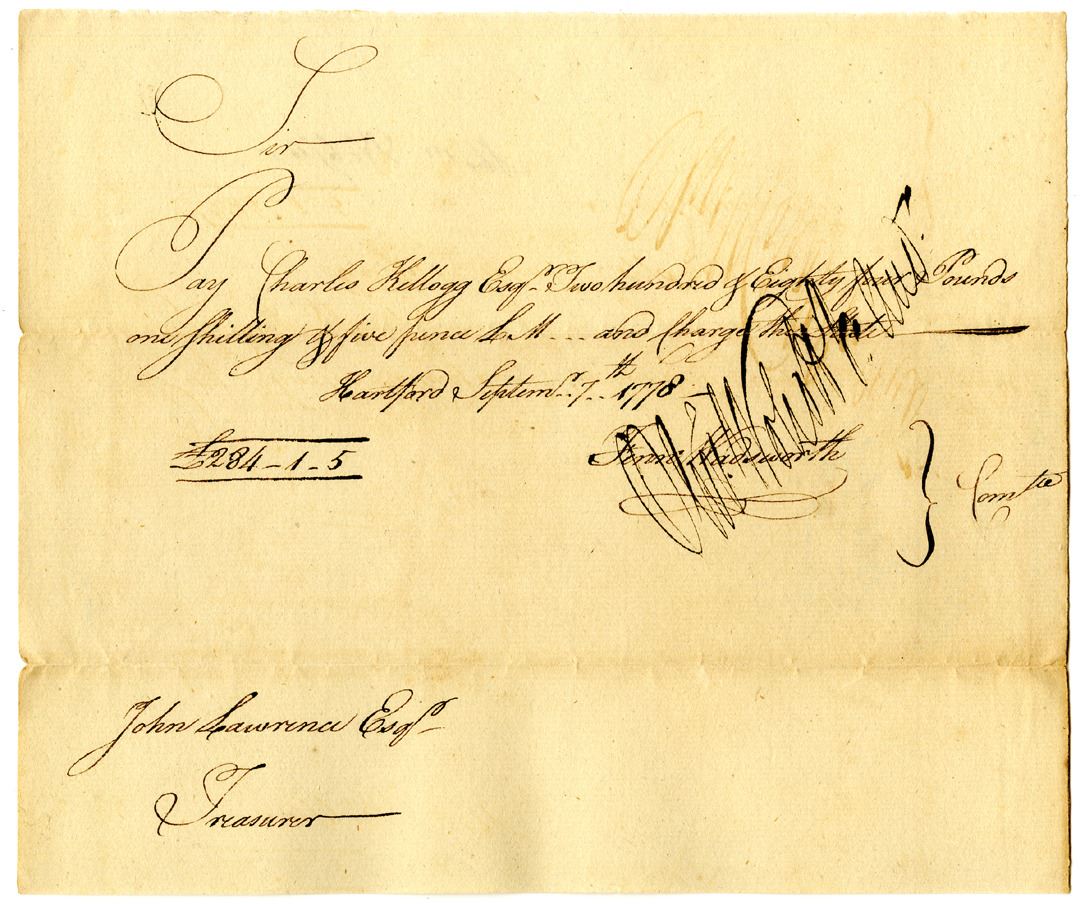 Sir
Pay Charles Kellogg Esqr Two hundred & Eighty four Pounds
one shilling & five pence L M - - - and Charge the State
Hartford Septemr 7th 1778
£284-1-5
Fenn Wadsworth } Comtee
John Lawrence Esqr
Treasurer